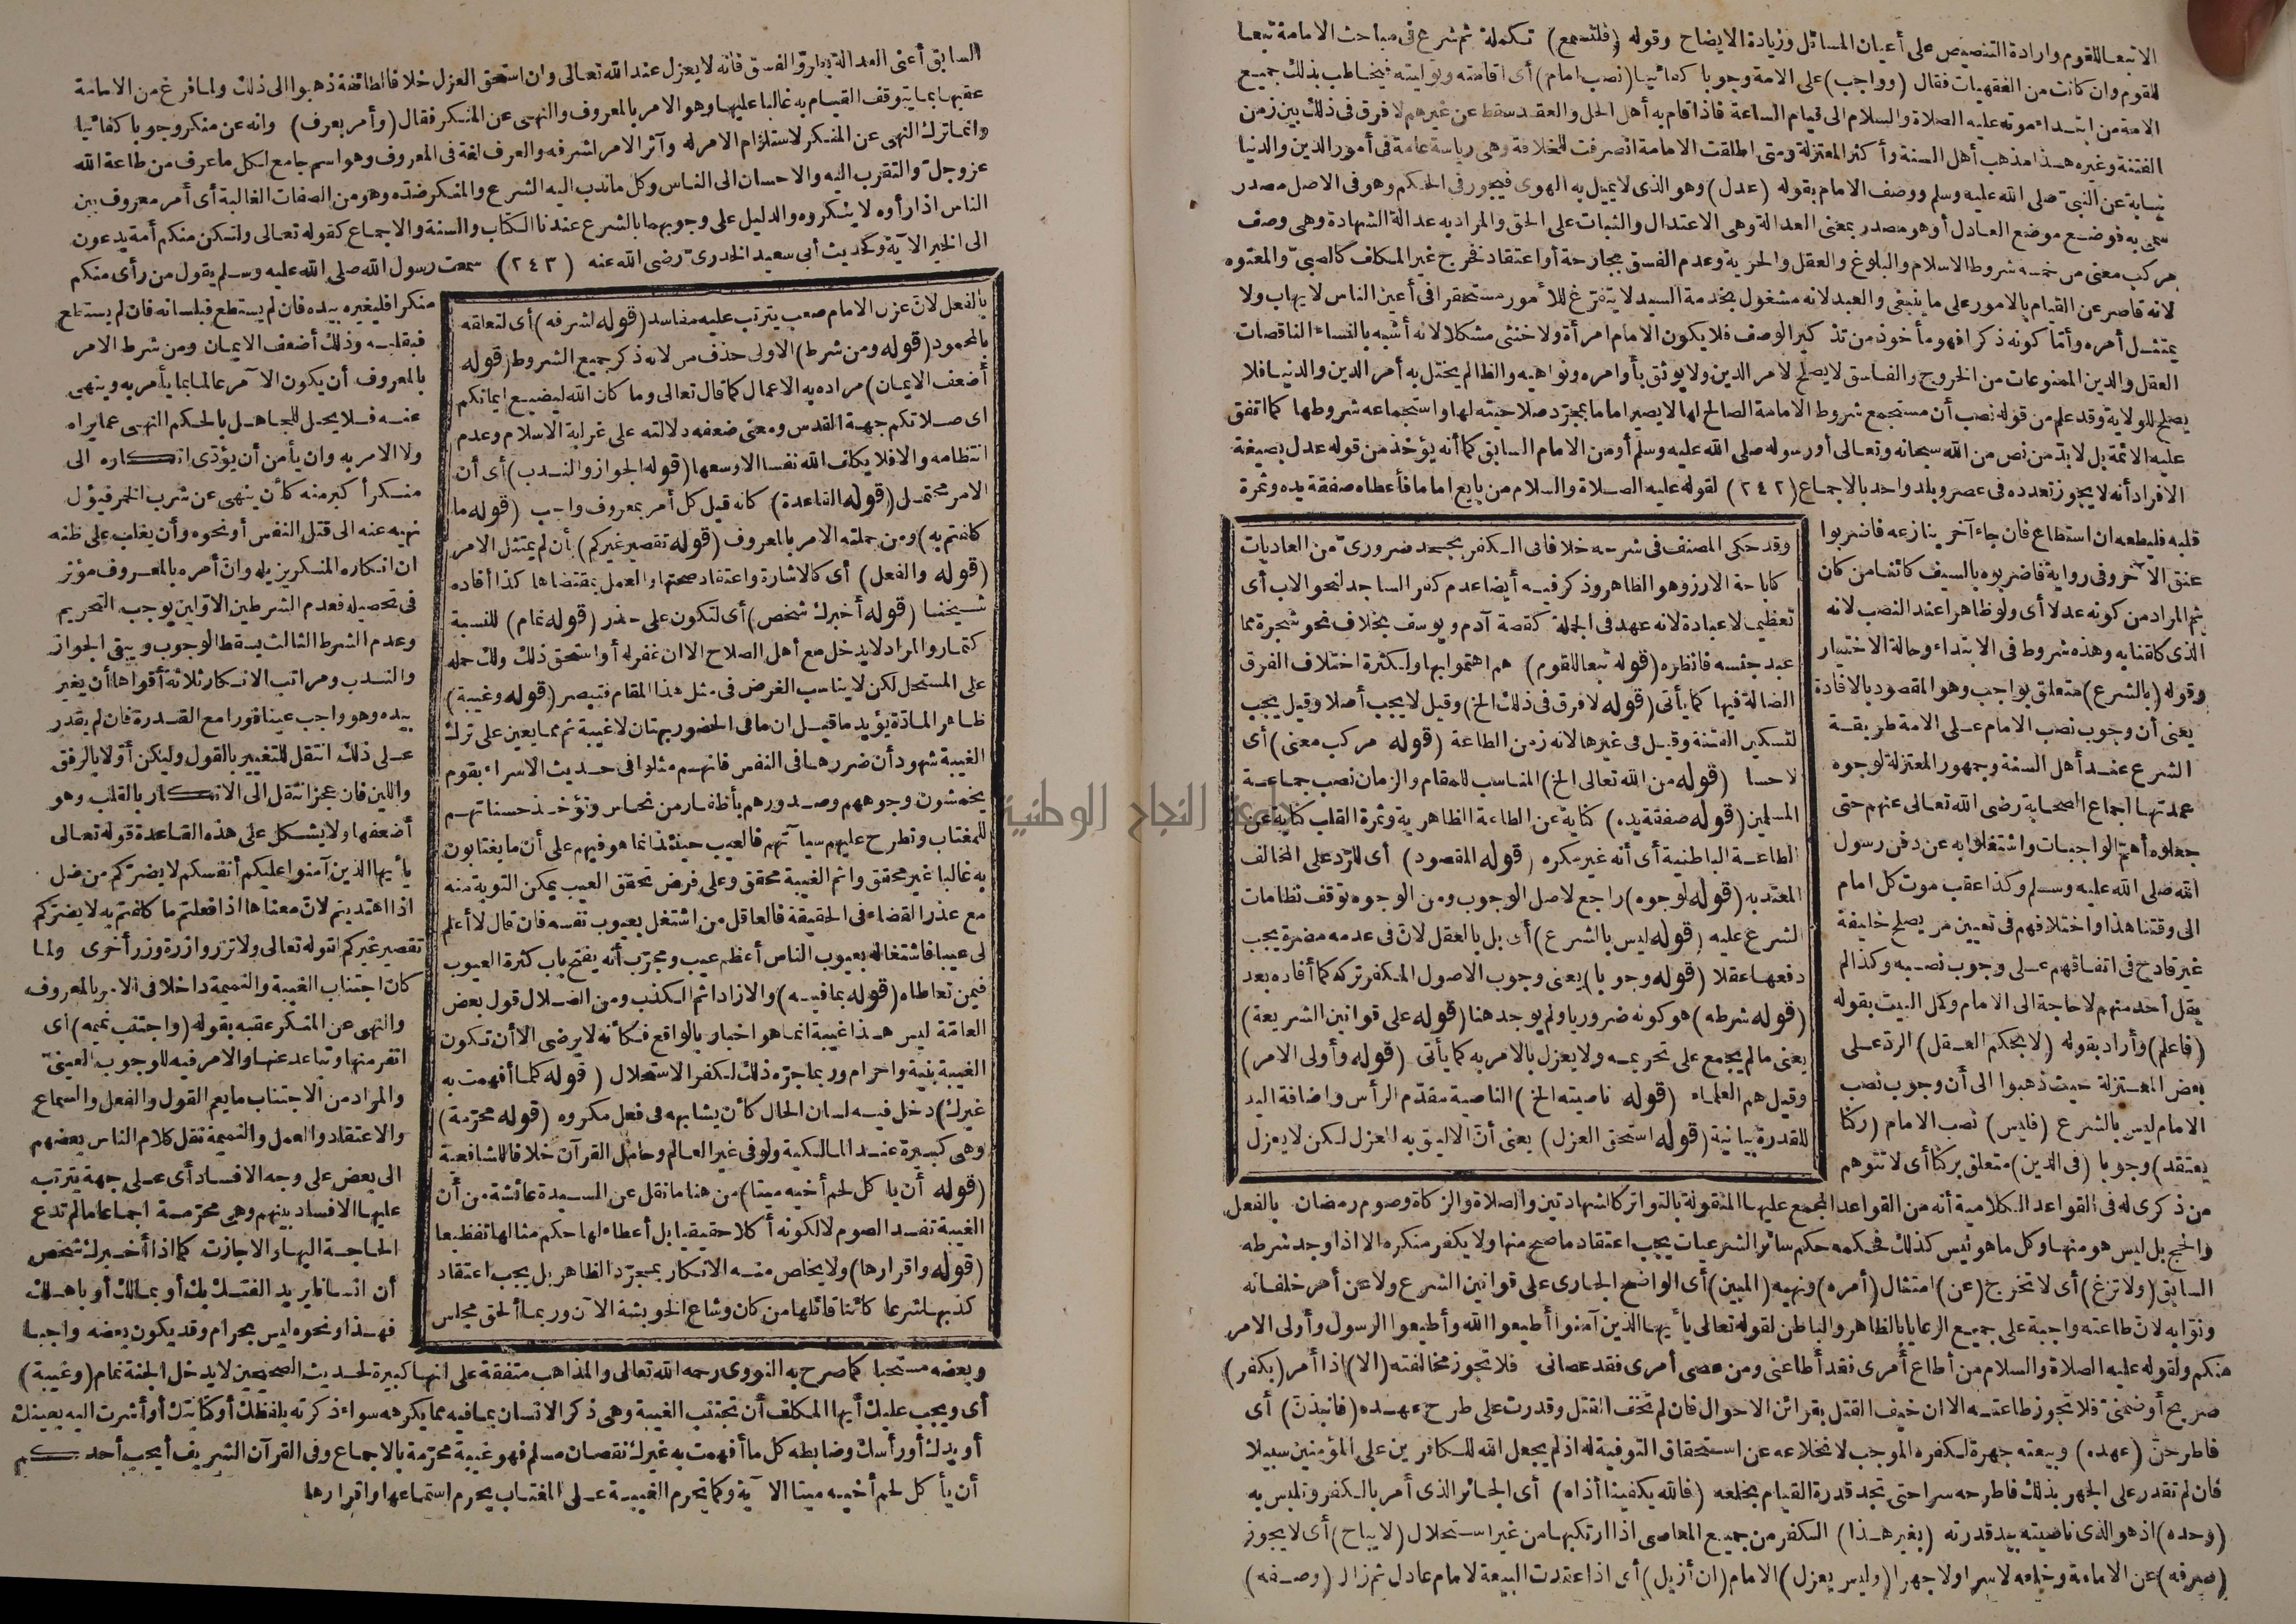 الاتبعا للقوم وارادة التنصيص على أعيان المسائل وزيادة الايضاح وقوله (فلتسمع) تكملة ثم شرع فى مباحث الامامة تبعا
للقوم وان كانت من الفقهيات فقال (وواجب) على الامة وجوبا كفائيا (نصب امام) أى اقامته وتوليته فيخاطب بذلك جميع
الامة من ابتداء موته عليه الصلاة والسلام الى قيام الساعة فاذا قام به أهل الحل والعقد سقط عن غيرهم لا فرق فى ذلك بين زمن
الفتنة وغيره هذا مذهب أهل السنة وأكثر المعتزلة ومتى اطلقت الامامة انصرفت للخلافة وهى رياسة عامة فى أمور الدين والدنيا
نيابة عن النبى صلى الله عليه وسلم ووصف الامام بقوله (عدل) وهو الذى لا يميل به الهوى فيجور فى الحكم وهو فى الاصل مصدر
سمى به فوضع موضع العادل أو هو مصدر بمعنى العدالة وهى الاعتدال والثبات على الحق والمراد به عدالة الشهادة وهى وصف
مركب معنى من خمسة شروط الاسلام والبلوغ والعقل والحرية وعدم الفسق بجارحة أو اعتقاد فخرج غير المكلف كالصبى والمعتوه
لانه قاصر عن القيام بالامور على ما ينبغى والعبد لانه مشغول بخدمة السيد لا يتفرّغ للأمور مستحقر فى أعين الناس لا يهاب ولا
يمتثل أمره وأمّا كونه ذكرا فهو مأخوذ من تذكير الوصف فلا يكون الامام امرأة ولا خنثى مشكلا لانه أشبه بالنساء الناقصات
العقل والدين الممنوعات من الخروج والفاسق لا يصلح لامر الدين ولا يوثق بأوامره ونواهيه والظالم يختل به أمر الدين والدنيا فلا
يصلح للولاية وقد علم من قوله نصب أن مستجمع شروط الامامة الصالح لها لا يصير اماما بمجرّد صلاحيته لها واستجماعه شروطها كما اتفق
عليه الائمة بل لا بدّ من نص من الله سبحانه وتعالى أو رسوله صلى الله عليه وسلم أو من الامام السابق كما أنه يؤخذ من قوله عدل بصيغة
الافراد أنه لا يجوز تعدده فى عصر وبلد واحد بالاجماع (٢٤٢) لقوله عليه الصلاة والسلام من بايع اماما فأعطاه صفقة يده وثمرة
قلبه فليطعه ان استطاع فان جاء آخر ينازعه فاضربوا
عنق الآخر وفى رواية فاضربوه بالسيف كائنا من كان
ثم المراد من كونه عدلا أى ولو ظاهرا عند النصب لانه
الذى كلفنا به وهذه شروط فى الابتداء وحالة الاختيار
وقوله (بالشرع) متعلق بواجب وهو المقصود بالافادة
يعنى أن وجوب نصب الامام على الامة طريقة
الشرع عند أهل السنة وجمهور المعتزلة لوجوه
عمدتها اجماع الصحابة رضى الله تعالى عنهم حتى
جعلوه أهمّ الواجبات واشتغلوا به عن دفن رسول
الله صلى الله عليه وسلم وكذا عقب موت كل امام
الى وقتنا هذا واختلافهم فى تعيين من يصلح خليفة
غير قادح فى اتفاقهم على وجوب نصبه وكذا لم
يقل أحد منهم لا حاجة الى الامام وكمل البيت بقوله
(فاعلم) وأراد بقوله (لا بحكم العقل) الردّ على
بعض المعتزلة حيث ذهبوا الى أن وجوب نصب
الامام ليس بالشرع (فليس) نصب الامام (ركنا
يعتقد) وجوبا (فى الدين) متعلق بركنا أى لا تتوهم
وقد حكى المصنف فى شرحه خلافا فى الكفر بجحد ضرورى من العاديات
كاباحة الارز وهو الظاهر وذكر فيه أيضا عدم كفر الساجد لنحو الاب أى
تعظيما لا عبادة لانه عهد فى الجملة كقصة آدم ويوسف بخلاف نحو شجرة مما
عبد جنسه فانظره (قوله تبعا للقوم) هم اهتموا بها ولكثرة اختلاف الفرق
الضالة فيها كما يأتى (قوله لا فرق فى ذلك الخ) وقيل لا يجب أصلا وقيل يجب
لتسكين الفتنة وقيل فى غيرها لانه زمن الطاعة (قوله مركب معنى) أى
لا حسا (قوله من الله تعالى الخ) المناسب للمقام والزمان نصب جماعة
المسلمين (قوله صفقة يده) كناية عن الطاعة الظاهرية وثمرة القلب كناية عن
الطاعة الباطنية أى أنه غير مكره (قوله المقصود) أى للرّد على المخالف
المعتد به (قوله لوجوه) راجع لاصل الوجوب ومن الوجوه توقف نظامات
الشرع عليه (قوله ليس بالشرع) أى بل بالعقل لانّ فى عدمه مضرة يجب
دفعها عقلا (قوله وجوبا) يعنى وجوب الاصول المكفر تركه كما أفاده بعد
(قوله شرطه) هو كونه ضروريا ولم يوجد هنا (قوله على قوانين الشريعة)
يعنى ما لم يجمع على تحريمه ولا يعزل بالامر به كما يأتى (قوله وأولى الامر)
وقيل هم العلماء (قوله ناصيته الخ) الناصية مقدّم الرأس واضافة اليد
للقدرة بيانية (قوله استحق العزل) يعنى أنّ الاليق به العزل لكن لا يعزل
من ذكرى له فى القواعد الكلامية أنه من القواعد المجمع عليها المنقولة بالتواتر كالشهادتين والصلاة والزكاة وصوم رمضان بالفعل
والحج بل ليس هو منها وكل ما هو ليس كذلك فحكمه حكم سائر الشرعيات يجب اعتقاد ما صح منها ولا يكفر منكره الا اذا وجد شرطه
السابق (ولا تزغ) أى لا تخرج (عن) امتثال (أمره) ونهيه (المبين) أى الواضح الجارى على قوانين الشرع ولا عن أمر خلفائه
ونوّابه لانّ طاعته واجبة على جميع الرعايا بالظاهر والباطن لقوله تعالى يا أيها الذين آمنوا أطيعوا الله وأطيعوا الرسول وأولى الامر
منكم ولقوله عليه الصلاة والسلام من أطاع أمرى فقد أطاعنى ومن عصى أمرى فقد عصانى فلا تجوز مخالفته (الا) اذا أمر (بكفر)
صريح أو ضمنىّ فلا تجوز طاعته الا ان خيف القتل بقرائن الاحوال فان لم تخف القتل وقدرت على طرح عهده (فانبذنّ) أى
فاطرحنّ (عهده) وبيعته جهرة لكفره الموجب لانخلاعه عن استحقاق التوفية له اذ لم يجعل الله للكافرين على المؤمنين سبيلا
فان لم تقدر على الجهر بذلك فاطرحه سرا حتى تجد قدرة القيام بخلعه (فالله يكفينا أذاه) أى الجائر الذى أمر بالكفر وتلبس به
(وحده) اذ هو الذى ناصيته بيد قدرته (بغير هذا) الكفر من جميع المعاصى اذا ارتكبها من غير استحلال (لا يباح) أى لا يجوز
(صرفه) عن الامامة وخلعه لا سرا ولا جهرا (وليس يعزل) الامام (ان أزيل) أى اذا عقدت البيعة لامام عادل ثم زال (وصفه)
السابق أعنى العدالة بطروّ الفسق فانه لا يعزل عند الله تعالى وان استحق العزل خلافا لطائفة ذهبوا الى ذلك ولما فرغ من الامامة
عقبها بما يتوقف القيام به غالبا عليها وهو الامر بالمعروف والنهى عن المنكر فقال (وأمر بعرف) وانه عن منكر وجوبا كفائيا
وانما ترك النهى عن المنكر لاستلزام الامر له وآثر الامر لشرفه والعرف لغة فى المعروف وهو اسم جامع لكل ما عرف من طاعة الله
عز وجلّ والتقرب اليه والاحسان الى الناس وكل ما ندب اليه الشرع والمنكر ضدّه وهو من الصفات الغالبة أى أمر معروف بين
الناس اذا رأوه لا ينكروه والدليل على وجوبهما بالشرع عندنا الكتاب والسنة والاجماع كقوله تعالى ولتكن منكم أمة يدعون
الى الخير الآية وكحديث أبى سعيد الخدرىّ رضى الله عنه (٢٤٣) سمعت رسول الله صلى الله عليه وسلم يقول من رأى منكم
منكرا فليغيره بيده فان لم يستطع فبلسانه فان لم يستطع
فبقلبه وذلك أضعف الايمان ومن شرط الامر
بالمعروف أن يكون الآمر عالما بما يأمر به وينهى
عنه فلا يحل للجاهل بالحكم النهى عما يراه
ولا الامر به وان يأمن أن يؤدّى انكاره الى
منكر أكبر منه كأن ينهى عن شرب الخمر فيؤل
نهيه عنه الى قتل النفس أو نحوه وأن يغلب على ظنه
ان انكاره المنكر يزيله وانّ أمره بالمعروف مؤثر
فى تحصيله فعدم الشرطين الاوّلين يوجب التحريم
وعدم الشرط الثالث يسقط الوجوب ويبقى الجواز
والندب ومراتب الانكار ثلاثة أقواها أن يغير
بيده وهو واجب عينا فورا مع القدرة فان لم يقدر
على ذلك انتقل للتغيير بالقول وليكن أوّلا بالرفق
واللين فان عجز انتقل الى الانكار بالقلب وهو
أضعفها ولا يشكل على هذه القاعدة قوله تعالى
يا أيها الذين آمنوا عليكم أنفسكم لا يضرّكم من ضل
اذا اهتديتم لانّ معناها اذا فعلتم ما كلفتم به لا يضرّكم
تقصير غيركم لقوله تعالى ولا تزر وازرة وزر أخرى ولما
كان اجتناب الغيبة والنميمة داخلا فى الامر بالمعروف
والنهى عن المنكر عقبه بقوله (واجتنب نميمه) أى
انفر منها وتباعد عنها والامر فيه للوجوب العينىّ
والمراد من الاجتناب ما يعم القول والفعل والسماع
والاعتقاد والعمل والنميمة نقل كلام الناس بعضهم
الى بعض على وجه الافساد أى على جهة يترتب
عليها الافساد بينهم وهى محرّمة اجماعا ما لم تدع
الحاجة اليها والا جازت كما اذا أخبرك شخص
أن انسانا يريد الفتك بك أو بمالك أو باهلك
فهذا ونحوه ليس بحرام وقد يكون بعضه واجبا
بالفعل لانّ عزل الامام صعب يترتب عليه مفاسد (قوله لشرفه) أى لتعلقه
بالمحمود (قوله ومن شرط) الاولى حذف من لانه ذكر جميع الشروط (قوله
أضعف الايمان) مراده به الاعمال كما قال تعالى وما كان الله ليضيع ايمانكم
اى صلاتكم جهة القدس ومعنى ضعفه دلالته على غرابة الاسلام وعدم
انتظامه والا فلا يكلف الله نفسا الا وسعها (قوله الجواز والندب) أى أن
الامر محتمل (قوله القاعدة) كانه قيل كل أمر بمعروف واجب (قوله ما
كلفتم به) ومن جملته الامر بالمعروف (قوله تقصير غيركم) بأن لم يمتثل الامر
(قوله والفعل) أى كالاشارة واعتقاد صحتها والعمل بمقتضاها كذا أفاده
شيخنا (قوله أخبرك شخص) أى لتكون على حذر (قوله نمام) للنسبة
كتمار والمراد لا يدخل مع أهل الصلاح الا ان غفر له أو استحق ذلك ولك حمله
على المستحل لكن لا يناسب الغرض فى مثل هذا المقام فتبصر (قوله وغيبة)
ظاهر المادّة يؤيد ما قيل ان ما فى الحضور بهتان لا غيبة ثم مما يعين على ترك
الغيبة شهود أن ضررها فى النفس فانهم مثلوا فى حديث الاسراء بقوم
يخمشون وجوههم وصدورهم بأظفار من نحاس وتؤخذ حسناتهم
للمغتاب وتطرح عليهم سيآتهم فالعيب حينئذ انما هو فيهم على أن ما يغتابون
به غالبا غير محقق واثم الغيبة محقق وعلى فرض تحقق العيب يمكن التوبة منه
مع عذر القضاء فى الحقيقة فالعاقل من اشتغل بعيوب نفسه فان قال لا أعلم
لى عيبا فاشتغاله بعيوب الناس أعظم عيب ومجرّب أنه يفتح باب كثرة العيوب
فيمن تعاطاه (قوله بما فيه) والا زاد اثم الكذب ومن الضلال قول بعض
العامّة ليس هذا غيبة انما هو اخبار بالواقع فكأنه لا يرضى الا أن تكون
الغيبة بنية واحرام وربما جرّه ذلك لكفر الاستحلال (قوله كلما أفهمت به
غيرك) دخل فيه لسان الحال كأن يشابهه فى فعل مكروه (قوله محرّمة)
وهى كبيرة عند المالكية ولو فى غير العالم وحامل القرآن خلافا للشافعية
(قوله أن يأكل لحم أخيه ميتا) من هنا ما نقل عن السيدة عائشة من أن
الغيبة تفسد الصوم لا لكونه أكلا حقيقيا بل أعطاه لها حكم مثالها تفظيعا
(قوله واقرارها) ولا يخلص منه الانكار بمجرّد الظاهر بل يجب اعتقاد
كذبها شرعا كائنا قائلها من كان وشاع الخوبشة الآن وربما ألحق مجلس
وبعضه مستحبا كما صرح به النووى رحمه الله تعالى والمذاهب متفقة على انها كبيرة لحديث الصحيحين لا يدخل الجنة نمام (وغيبة)
أى ويجب عليك أيها المكلف أن تجتنب الغيبة وهى ذكر الانسان بما فيه مما يكرهه سواء ذكرته بلفظك أو كتابتك أو أشرت اليه بعينك
أو يدك أو رأسك وضابطه كل ما أفهمت به غيرك نقصان مسلم فهو غيبة محرّمة بالاجماع وفى القرآن الشريف أيحب أحدكم
أن يأكل لحم أخيه ميتا الآية وكما تحرم الغيبة على المغتاب يحرم استماعها واقرارها
جامعة النجاح الوطنية